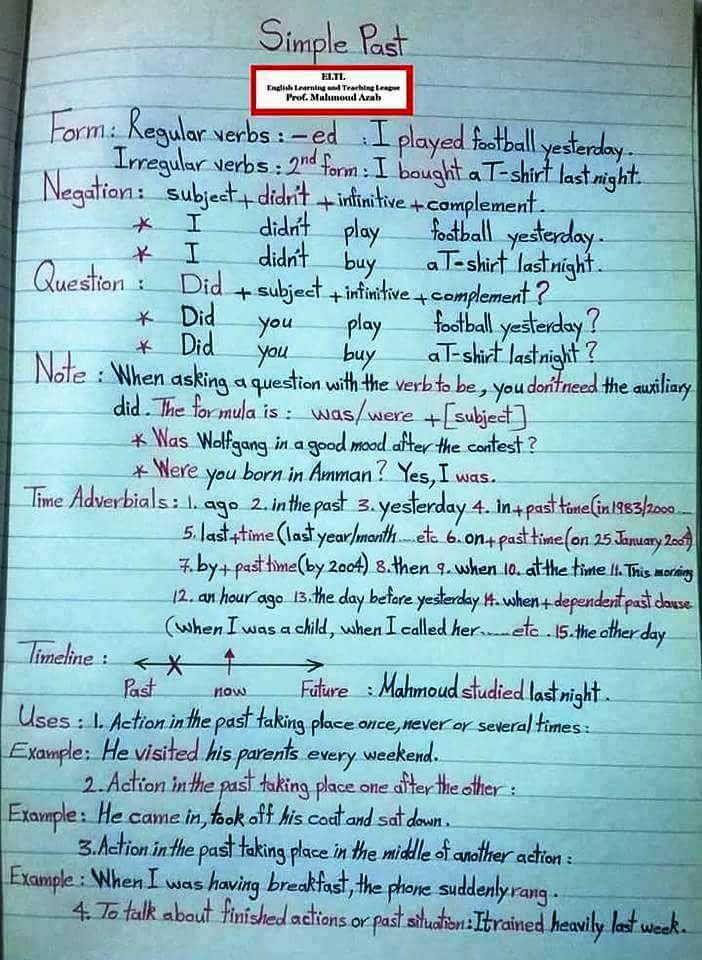 Simple Past
ELTL
English Learning and Teaching League
Prof. Mahmoud Azab
Form: Regular verbs: -ed : I played football yesterday.
Irregular verbs: 2nd form: I bought a T-shirt last night.
Negation: subject + didn't + infinitive + complement.
* I didn't play football yesterday.
* I didn't buy a T-shirt last night.
Question: Did + subject + infinitive + complement?
* Did you play football yesterday?
* Did you buy a T-shirt last night?
Note: When asking a question with the verb to be, you don't need the auxiliary
did. The formula is: was/were + [subject]
* Was Wolfgang in a good mood after the contest?
* Were you born in Amman? Yes, I was.
Time Adverbials: 1. ago 2. in the past 3. yesterday 4. in + past time (in 1983/2000 ....
5. last + time (last year/month .... etc 6. on + past time (on 25 January 2007)
7. by + past time (by 2004) 8. then 9. when 10. at the time 11. This morning
12. an hour ago 13. the day before yesterday 14. when + dependent past clause
(when I was a child, when I called her ..... etc. 15. the other day
Timeline:
Past now Future : Mahmoud studied last night.
Uses: 1. Action in the past taking place once, never or several times:
Example: He visited his parents every weekend.
2. Action in the past taking place one after the other:
Example: He came in, took off his coat and sat down.
3. Action in the past taking place in the middle of another action:
Example: When I was having breakfast, the phone suddenly rang.
4. To talk about finished actions or past situation: It rained heavily last week.